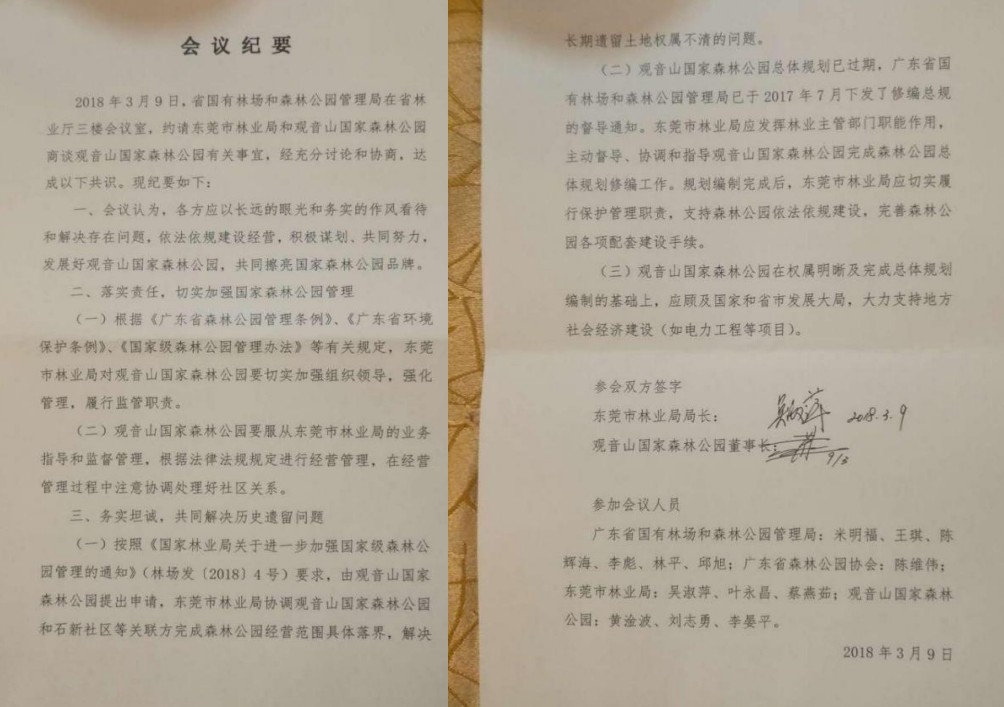 会议纪要
2018年3月9日，省国有林场和森林公园管理局在省林
业厅三楼会议室，约请东莞市林业局和观音山国家森林公园
商谈观音山国家森林公园有关事宜，经充分讨论和协商，达
成以下共识。现纪要如下：
一、会议认为，各方应以长远的眼光和务实的作风看待
和解决存在问题，依法依规建设经营，积极谋划、共同努力，
发展好观音山国家森林公园，共同擦亮国家森林公园品牌。
二、落实责任，切实加强国家森林公园管理
（一）根据《广东省森林公园管理条例》、《广东省环境
保护条例》、《国家级森林公园管理办法》等有关规定，东莞
市林业局对观音山国家森林公园要切实加强组织领导，强化
管理，履行监管职责。
（二）观音山国家森林公园要服从东莞市林业局的业务
指导和监督管理，根据法律法规规定进行经营管理，在经营
管理过程中注意协调处理好社区关系。
三、务实坦诚，共同解决历史遗留问题
（一）按照《国家林业局关于进一步加强国家级森林公
园管理的通知》（林场发〔2018〕4号）要求，由观音山国家
森林公园提出申请，东莞市林业局协调观音山国家森林公园
和石新社区等关联方完成森林公园经营范围具体落界，解决
长期遗留土地权属不清的问题。
（二）观音山国家森林公园总体规划已过期，广东省国
有林场和森林公园管理局已于2017年7月下发了修编总规
的督导通知。东莞市林业局应发挥林业主管部门职能作用，
主动督导、协调和指导观音山国家森林公园完成森林公园总
体规划修编工作。规划编制完成后，东莞市林业局应切实履
行保护管理职责，支持森林公园依法依规建设，完善森林公
园各项配套建设手续。
（三）观音山国家森林公园在权属明晰及完成总体规划
编制的基础上，应顾及国家和省市发展大局，大力支持地方
社会经济建设（如电力工程等项目）。
参会双方签字
东莞市林业局局长： 吴淑萍 2018.3.9
观音山国家森林公园董事长： 9/3
参加会议人员
广东省国有林场和森林公园管理局：米明福、王琪、陈
辉海、李彪、林平、邱旭；广东省森林公园协会：陈维伟；
东莞市林业局：吴淑萍、叶永昌、蔡燕茹；观音山国家森林
公园：黄淦波、刘志勇、李晏平。
2018年3月9日